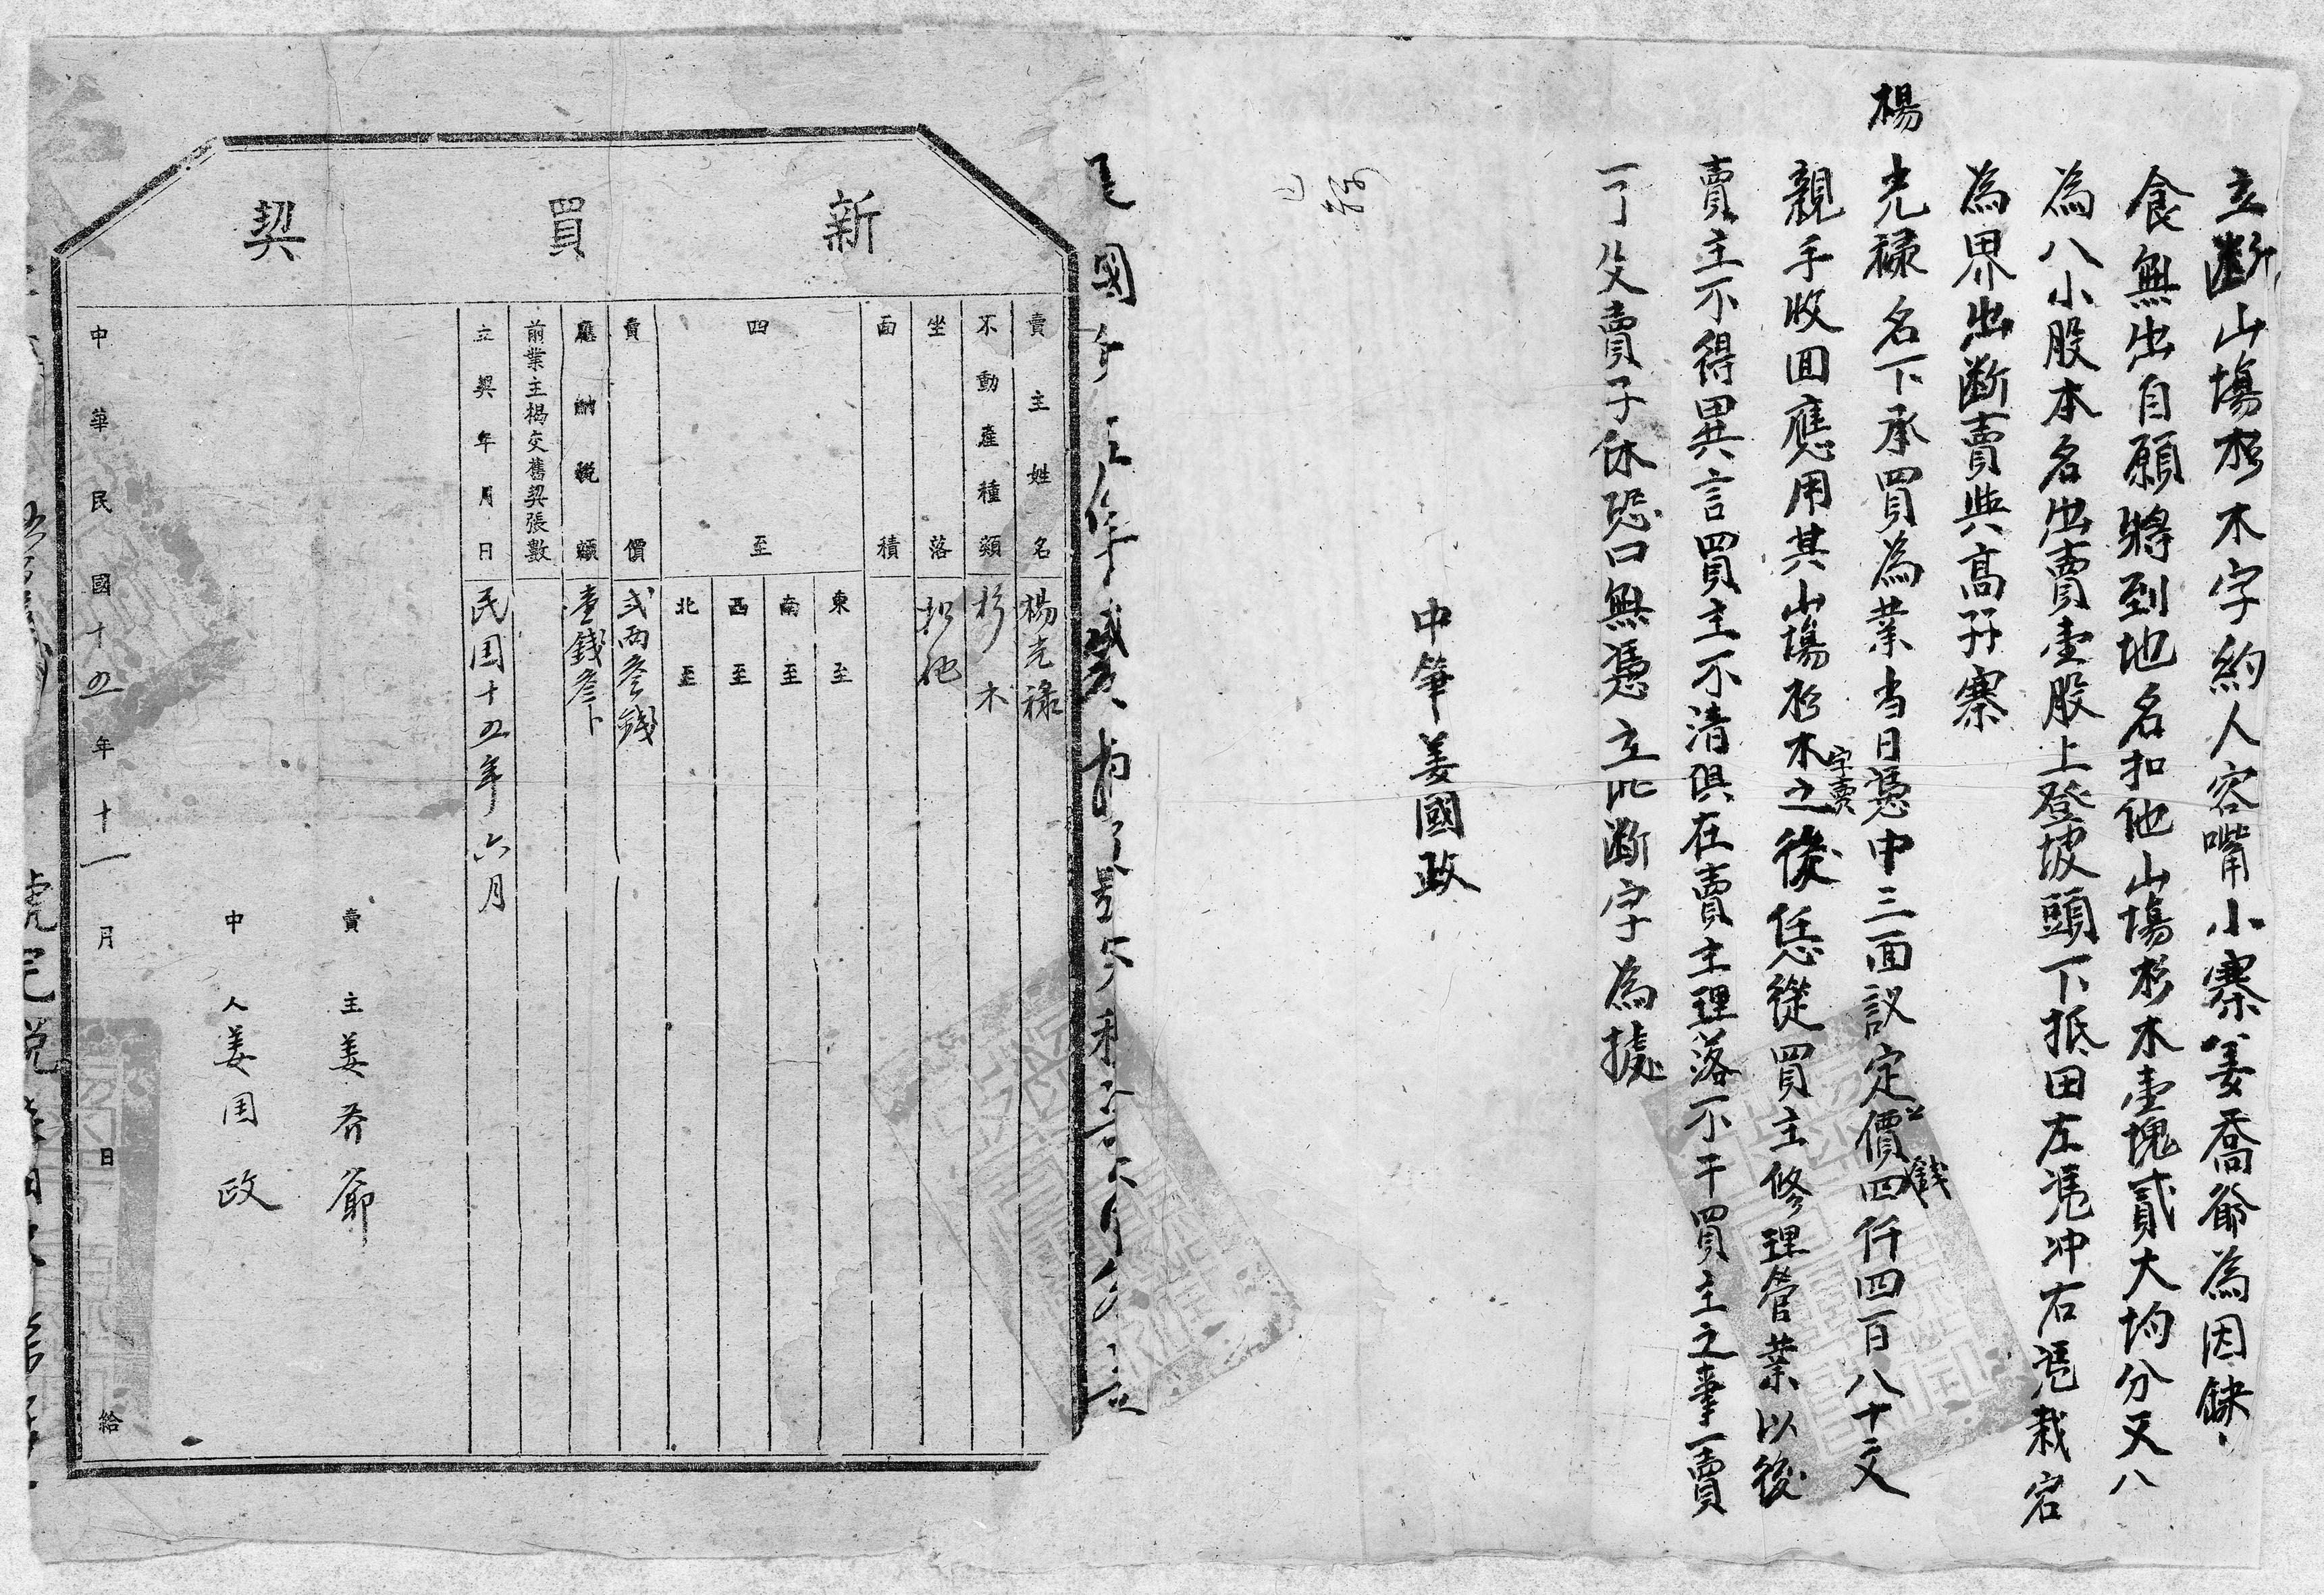 立斷山塲杉木字約人容嘴小寨姜喬爺為因缺
食無出自願將到地名扣他山塲杉木壹塊貳大均分又八
為八小股本名出賣壹股上登坡頭下抵田左凴冲右凴栽宕
為界出斷賣與髙孖寨
楊光禄名下承買為業当日憑中三面議定價錢四仟四百八十文
親手收回應用其山塲杉木字賣之後恁從買主修理管業以後
賣主不得異言買主不清俱在賣主理落不干買主之事一賣
一了父賣子休恐口無憑立此斷字為據
中筆姜國政
新買契
賣主姓名 楊光禄
不動產種類 杉木
坐落 扣他
面積
四至
東至
南至
西至
北至
賣價 弍两叁錢
應納稅額 壹錢叁卜
前業主楊交舊契張數
立契年月日 民国十五年六月
賣主姜乔爺
中人姜国政
中華民國十五年十一月 日給